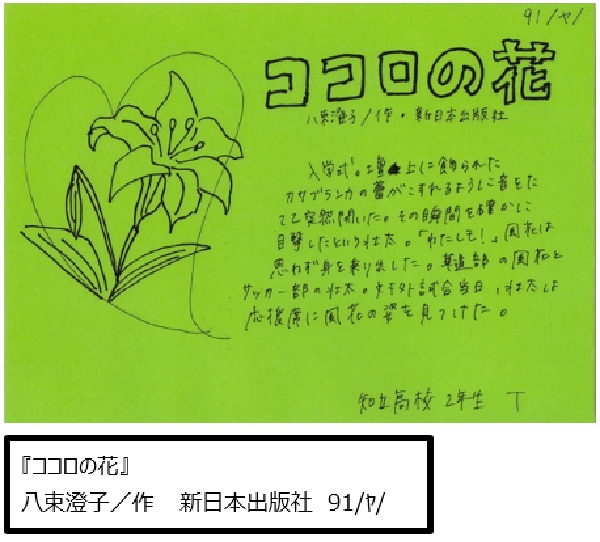 91/ヤ/
ココロの花
八束澄子/作・新日本出版社
入学式。壇上に飾られた
カサブランカの蕾がこすれるような音をた
てて突然開いた。その瞬間を確かに
目撃したという壮太。「わたしも!」風花は
思わず身を乗りだした。華道部の風花と
サッカー部の壮太。試合当日、壮太は
応援席に風花の姿を見つけた。
知立高校 2年生 T
『ココロの花』
八束澄子／作　新日本出版社 91/ﾔ/